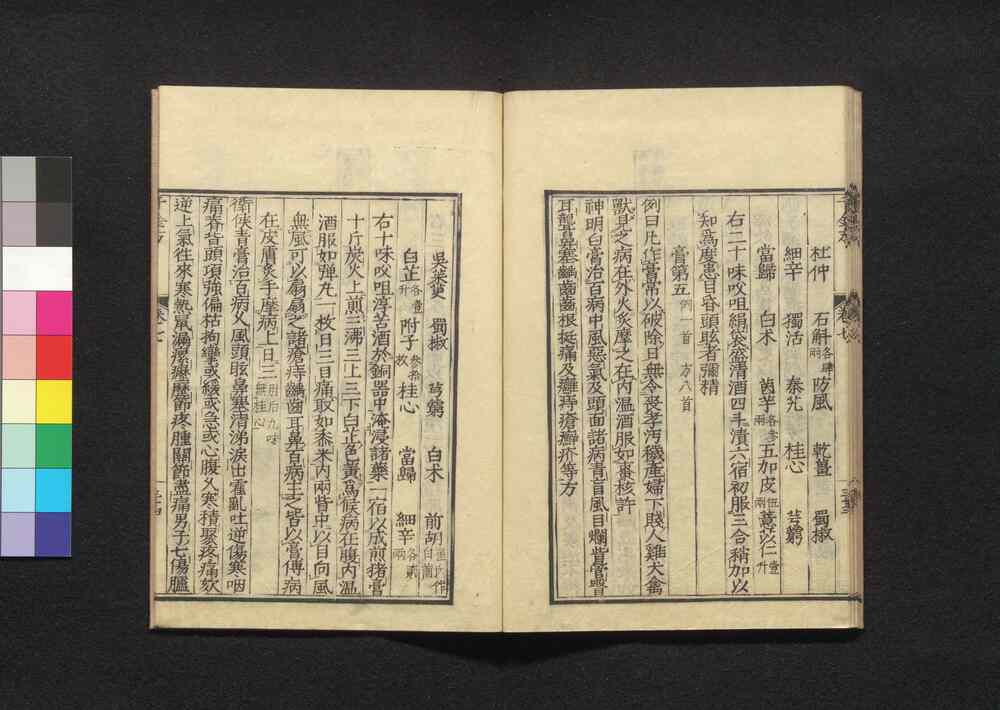 杜仲 石斛各肆兩 防風 乾薑 蜀椒
細辛 獨活 秦艽 桂心 芎藭
當歸 白朮 茵芋各參兩 五加皮伍兩 薏苡仁壹升
右二十味㕮咀絹袋盛清酒四斗漬六宿初服三合稍加以
知爲度患目昏頭眩者彌精
膏第五例一首 方八首
例曰凡作膏常以破除日無令喪孝汚穢產婦下賤人雞犬禽
獸見之病在外火炙摩之在内溫酒服如棗核許
神明白膏治百病中風惡氣及頭面諸病青盲風目爛眥管翳
耳聾鼻塞齲齒齒根挺痛及癰痔瘡癬疥等方
吳茱萸 蜀椒 芎藭 白朮 前胡
白芷各壹升 附子叁拾枚 桂心 當歸 細辛各貳兩
右十味㕮咀淳苦酒於銅器中淹浸諸藥一宿以成煎猪膏
十斤炭火上煎三沸三上三下白芷色黃爲候病在腹内溫
酒服如彈丸一枚日三目痛取如黍米内兩眥中以目向風
無風可以扇扇之諸瘡痔齲齒耳鼻百病主之皆以膏傅病
在皮膚炙手摩病上日三肘后九味無桂心
衛侯青膏治百病久風頭眩鼻塞清涕淚出霍亂吐逆傷寒咽
痛脊背頭項強偏枯拘攣或緩或急或心腹久寒積聚疼痛欬
逆上氣往來寒熱鼠漏瘰癧歷節疼腫關節盡痛男子七傷臚